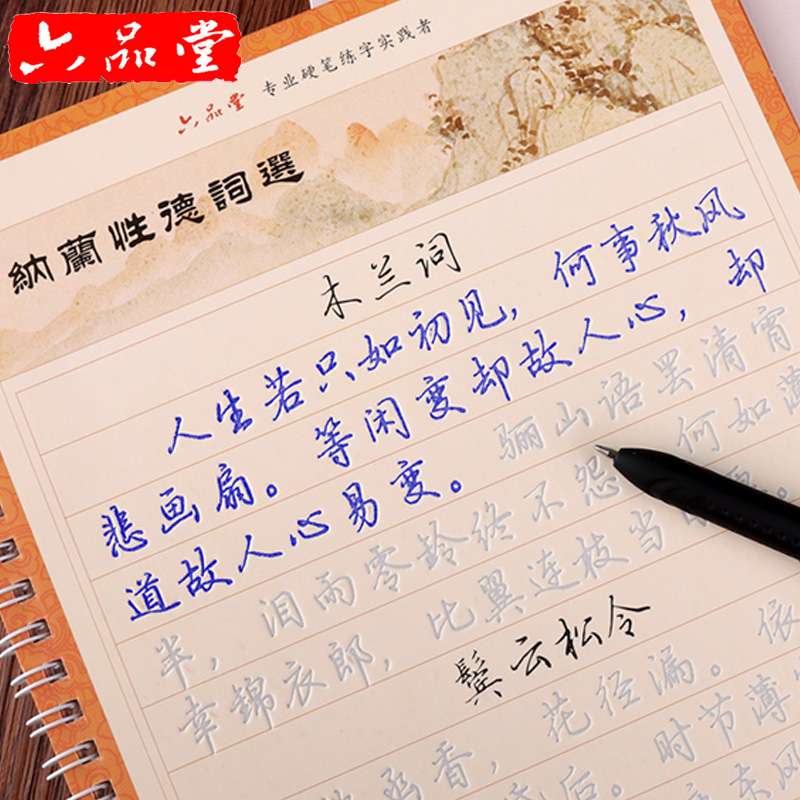 六品堂
六品堂 专业硬笔练字实践者
納蘭性德詞選
木兰词
人生若只如初见，何事秋风
悲画扇。等闲变却故人心，却
道故人心易变。骊山语罢清宵
半，泪雨零铃终不怨。何如薄
幸锦衣郎，比翼连枝当
鬓云松令
香，花径漏。依
后。时节薄
东风